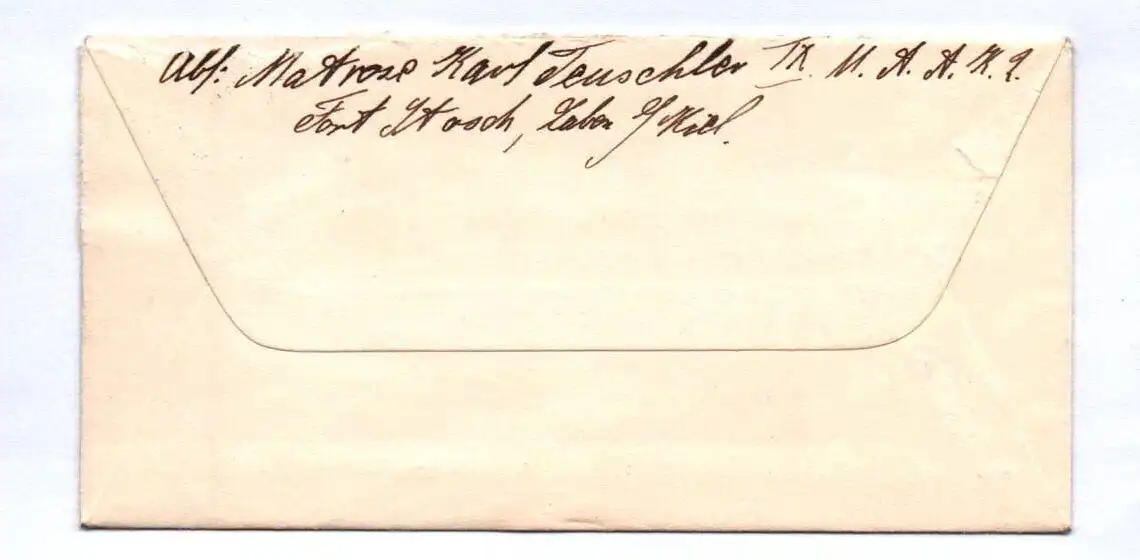 Abs: Matrose Karl Teuschler IX. M. A. A. K. 2.
Fort Stosch, Laboe b/Kiel.